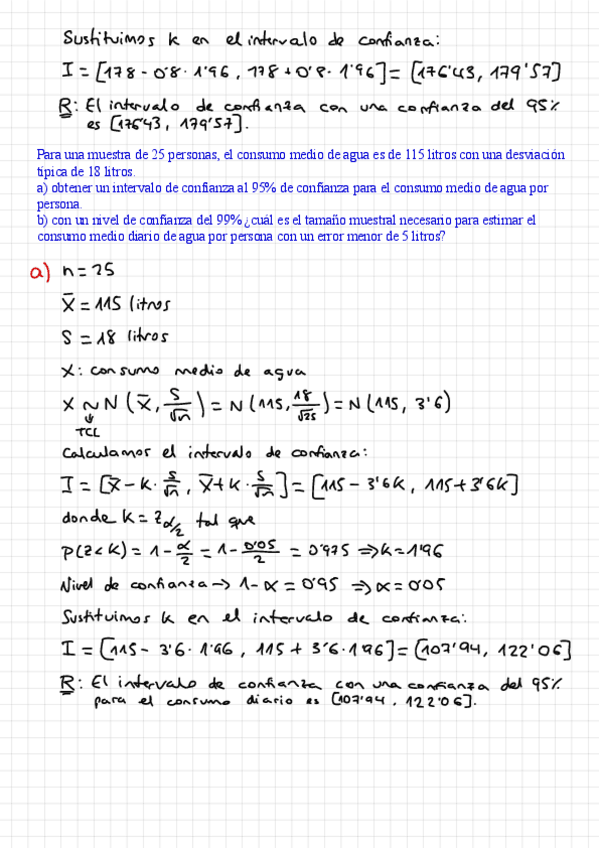 Sustituimos k en el intervalo de confianza:
I = [178 - 0'8 · 1'96 , 178 + 0'8 · 1'96] = [176'43, 179'57]
R: El intervalo de confianza con una confianza del 95%
es [176'43, 179'57].
Para una muestra de 25 personas, el consumo medio de agua es de 115 litros con una desviación
típica de 18 litros.
a) obtener un intervalo de confianza al 95% de confianza para el consumo medio de agua por
persona.
b) con un nivel de confianza del 99% ¿cuál es el tamaño muestral necesario para estimar el
consumo medio diario de agua por persona con un error menor de 5 litros?
a) n = 25
X̄ = 115 litros
S = 18 litros
X: consumo medio de agua
X ~ N (x̄, S/√n) = N (115, 18/√25) = N (115, 3'6)
↓
TCL
Calculamos el intervalo de confianza:
I = [x̄ - k · S/√n , x̄ + k · S/√n] = [115 - 3'6k , 115 + 3'6k]
donde k = z α/2 tal que
P(Z < k) = 1 - α/2 = 1 - 0'05/2 = 0'975 ⇒ k = 1'96
Nivel de confianza → 1 - α = 0'95 ⇒ α = 0'05
Sustituimos k en el intervalo de confianza:
I = [115 - 3'6 · 1'96 , 115 + 3'6 · 1'96] = [107'94, 122'06]
R: El intervalo de confianza con una confianza del 95%
para el consumo diario es [107'94 , 122'06].